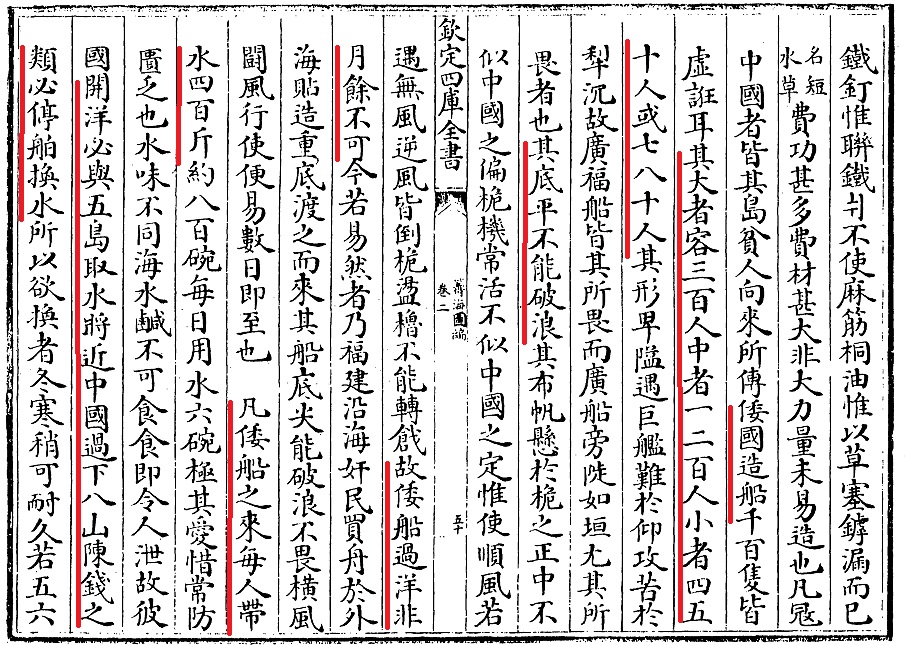 鐵釘惟聯鐵片不使麻筋桐油惟以草塞罅漏而已
名短
水草
費功甚多費材甚大非大力量未易造也凡冦
中國者皆其島貧人向來所傳倭國造船千百隻皆
虛誑耳其大者容三百人中者一二百人小者四五
十人或七八十人其形卑隘遇巨艦難於仰攻苦於
犁沉故廣福船皆其所畏而廣船旁陡如垣尤其所
畏者也其底平不能破浪其布帆懸於桅之正中不
似中國之偏桅機常活不似中國之定惟使順風若
欽定四庫全書
籌海圖編
卷二
五十
遇無風逆風皆倒桅盪櫓不能轉戧故倭船過洋非
月餘不可今若易然者乃福建沿海奸民買舟於外
海貼造重底渡之而來其船底尖能破浪不畏橫風
鬭風行使便易數日即至也　凡倭船之來每人帶
水四百斤約八百碗每日用水六碗極其愛惜常防
匱乏也水味不同海水鹹不可食食即令人泄故彼
國開洋必與五島取水將近中國過下八山陳錢之
類必停舶換水所以欲換者冬寒稍可耐久若五六